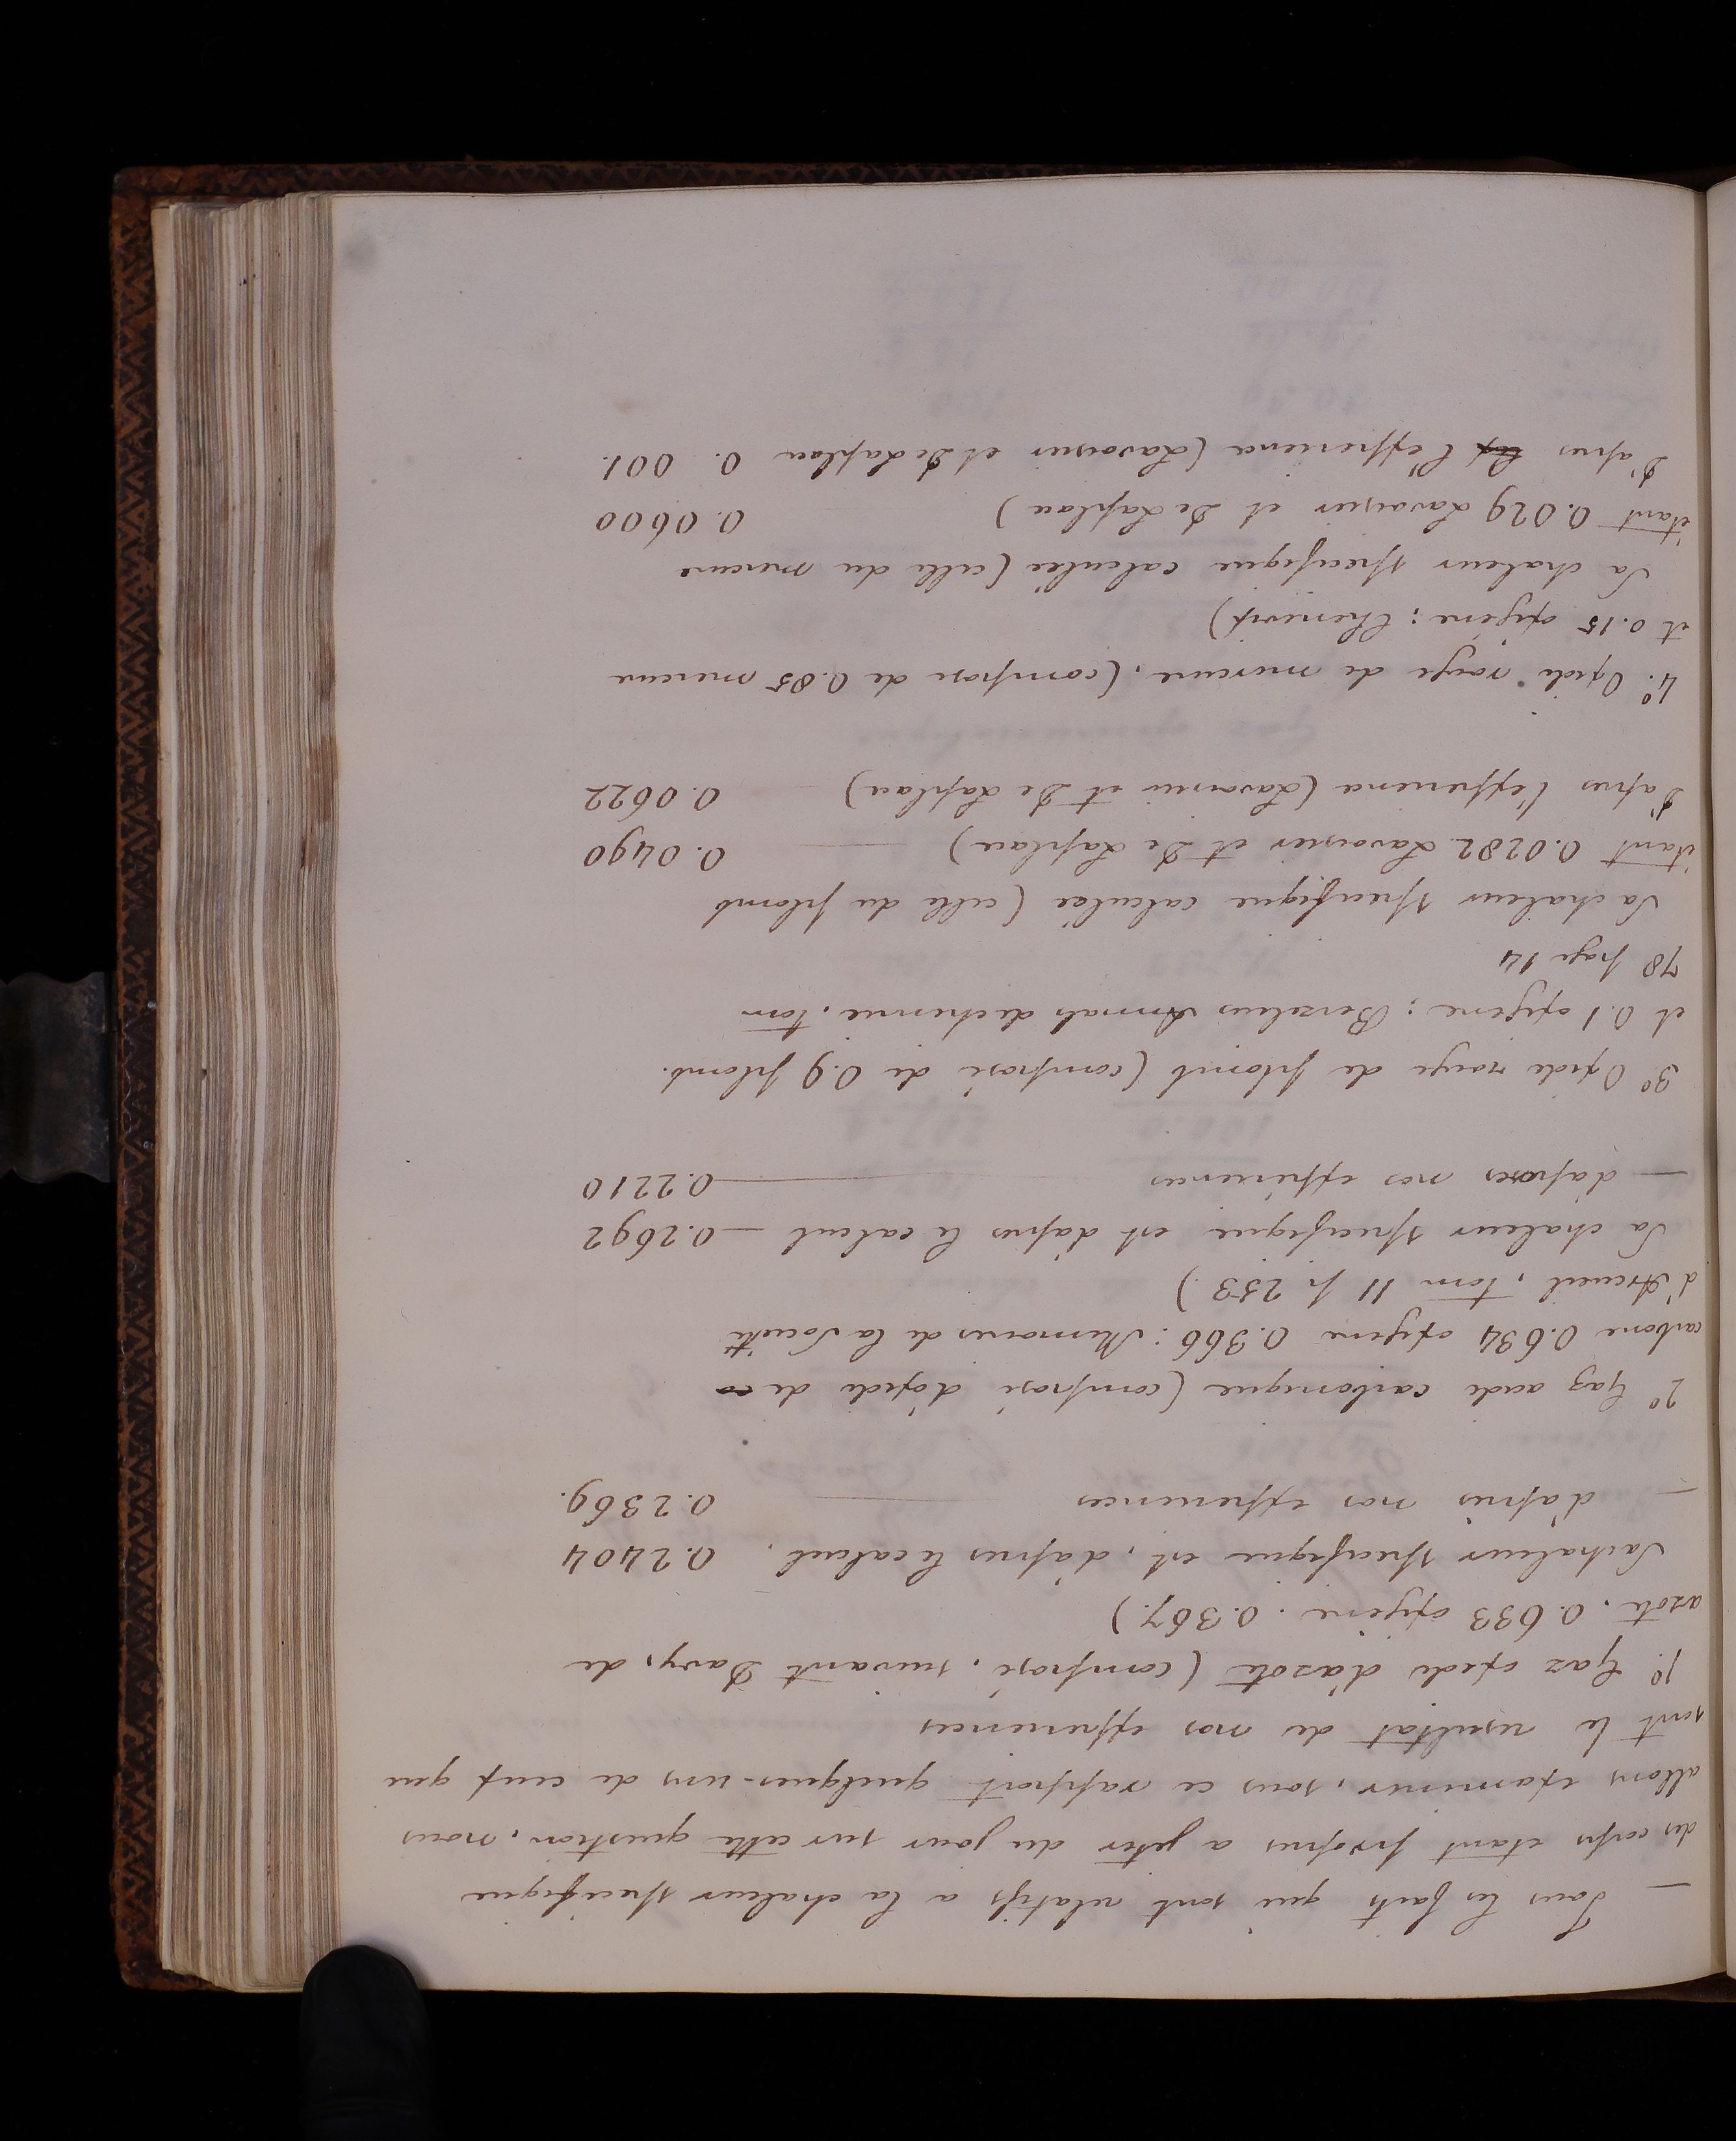 — Tous les faits qui sont relatifs a la chaleur specifique
des corps etant propres a jeter du jour sur cette question, nous
allons examiner, sous ce rapport quelques-uns de ceux que
sont le resultat de nos experiences
1.° Gaz oxide d'azote (composé, suivant Davy, de
azote. 0.633 oxigene. 0.367.)
Sa chaleur specifique est, d'apres le calcul. 0.2404
— d'apres nos experiences 0.2369.
2° Gaz acide carbonique (composé d'oxide de
carbone 0.634 oxigene 0.366: Memoires de la Societe
d'Arcueil, tom 11 p. 253.)
Sa chaleur specifique est d'apres le calcul — 0.2692
— d'apres nos expériences — 0.2210
3° Oxide rouge de plomb (composé de 0.9 plomb.
et 0.1 oxigene: Berzelius Annals de chemie. tom
78 page 14
Sa chaleur specifique calculée (celle du plomb
étant 0.0282 Lavoisier et De Laplace) — 0.0490
D'apres l'experience (Lavoisier et De Laplace) 0.0622
4.° Oxide rouge de mercure. (compose de 0.85 mercure
et 0.15 oxigène: Chenevix)
Sa chaleur specifique calculée (celle du mercure
étant 0.029 Lavoisier et De Laplace) 0.0600
D'apres l'experience (Lavoisier et De Laplace 0.001.